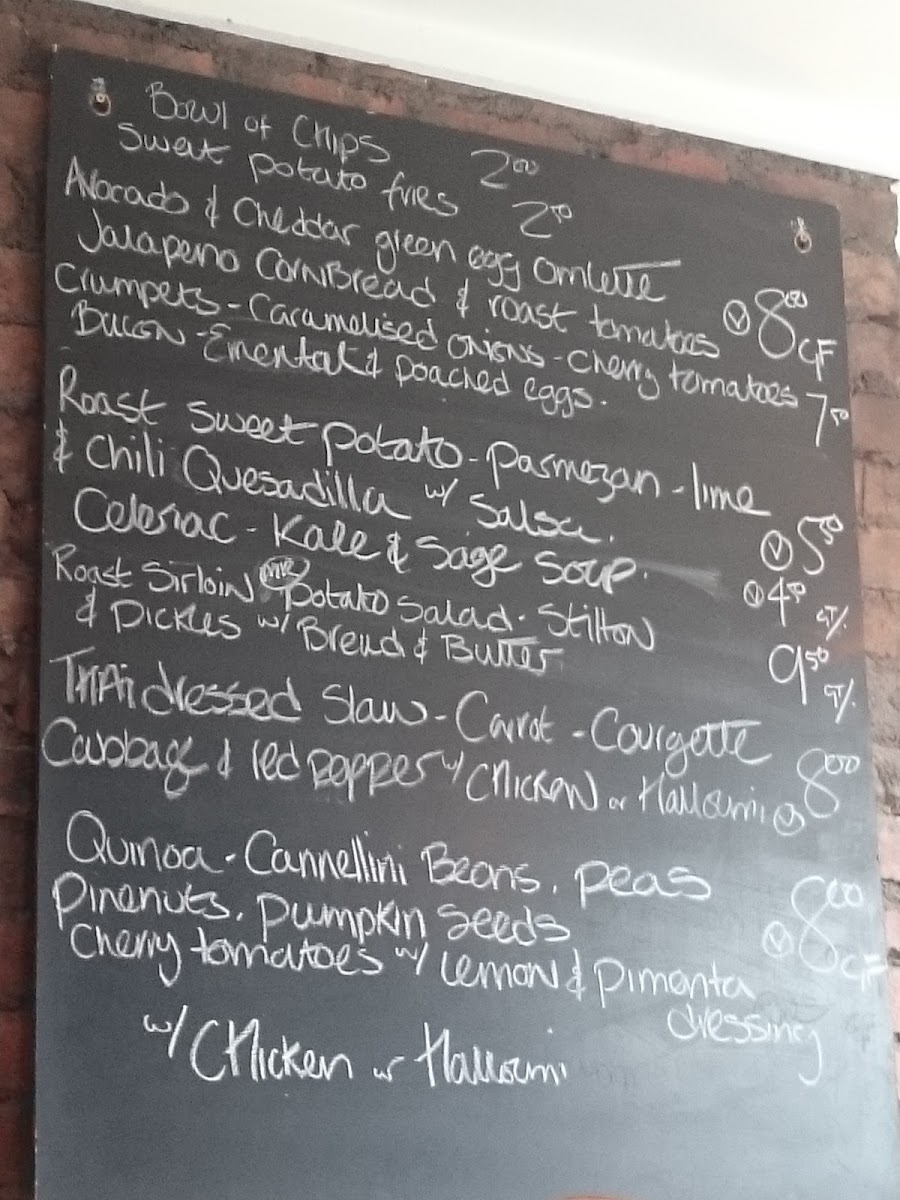 Bowl of Chips 2⁰⁰
Sweet potato fries 2⁵⁰
Avocado & Cheddar green egg omlette
Jalapeno CornBread & roast tomatoes Ⓥ 8⁰⁰ GF
Crumpets - Caramelised onions - Cherry tomatoes
Bacon - Emental & poached eggs. 7⁵⁰
Roast Sweet potato - Parmezan - lime
& Chili Quesadilla w/ Salsa. Ⓥ 5⁵⁰
Celeriac - Kale & Sage Soup. Ⓥ 4⁵⁰
Roast Sirloin Potato Salad - Stilton
& Pickles w/ Bread & Butter 9⁵⁰
Thai dressed Slaw - Carrot - Courgette
Cabbage & red pepper w/ Chicken or Halloumi Ⓥ 8⁰⁰
Quinoa - Cannellini Beans, peas
Pinenuts, pumpkin seeds Ⓥ 8⁰⁰ GF
Cherry tomatoes w/ Lemon & Pimenta
dressing
w/ Chicken or Halloumi